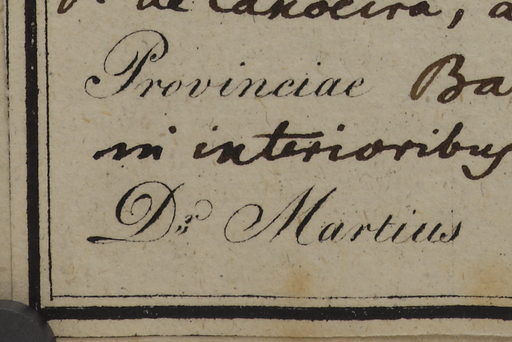 de Cahoeira, a
Provinciae Ba
in interioribus
Dr. Martius